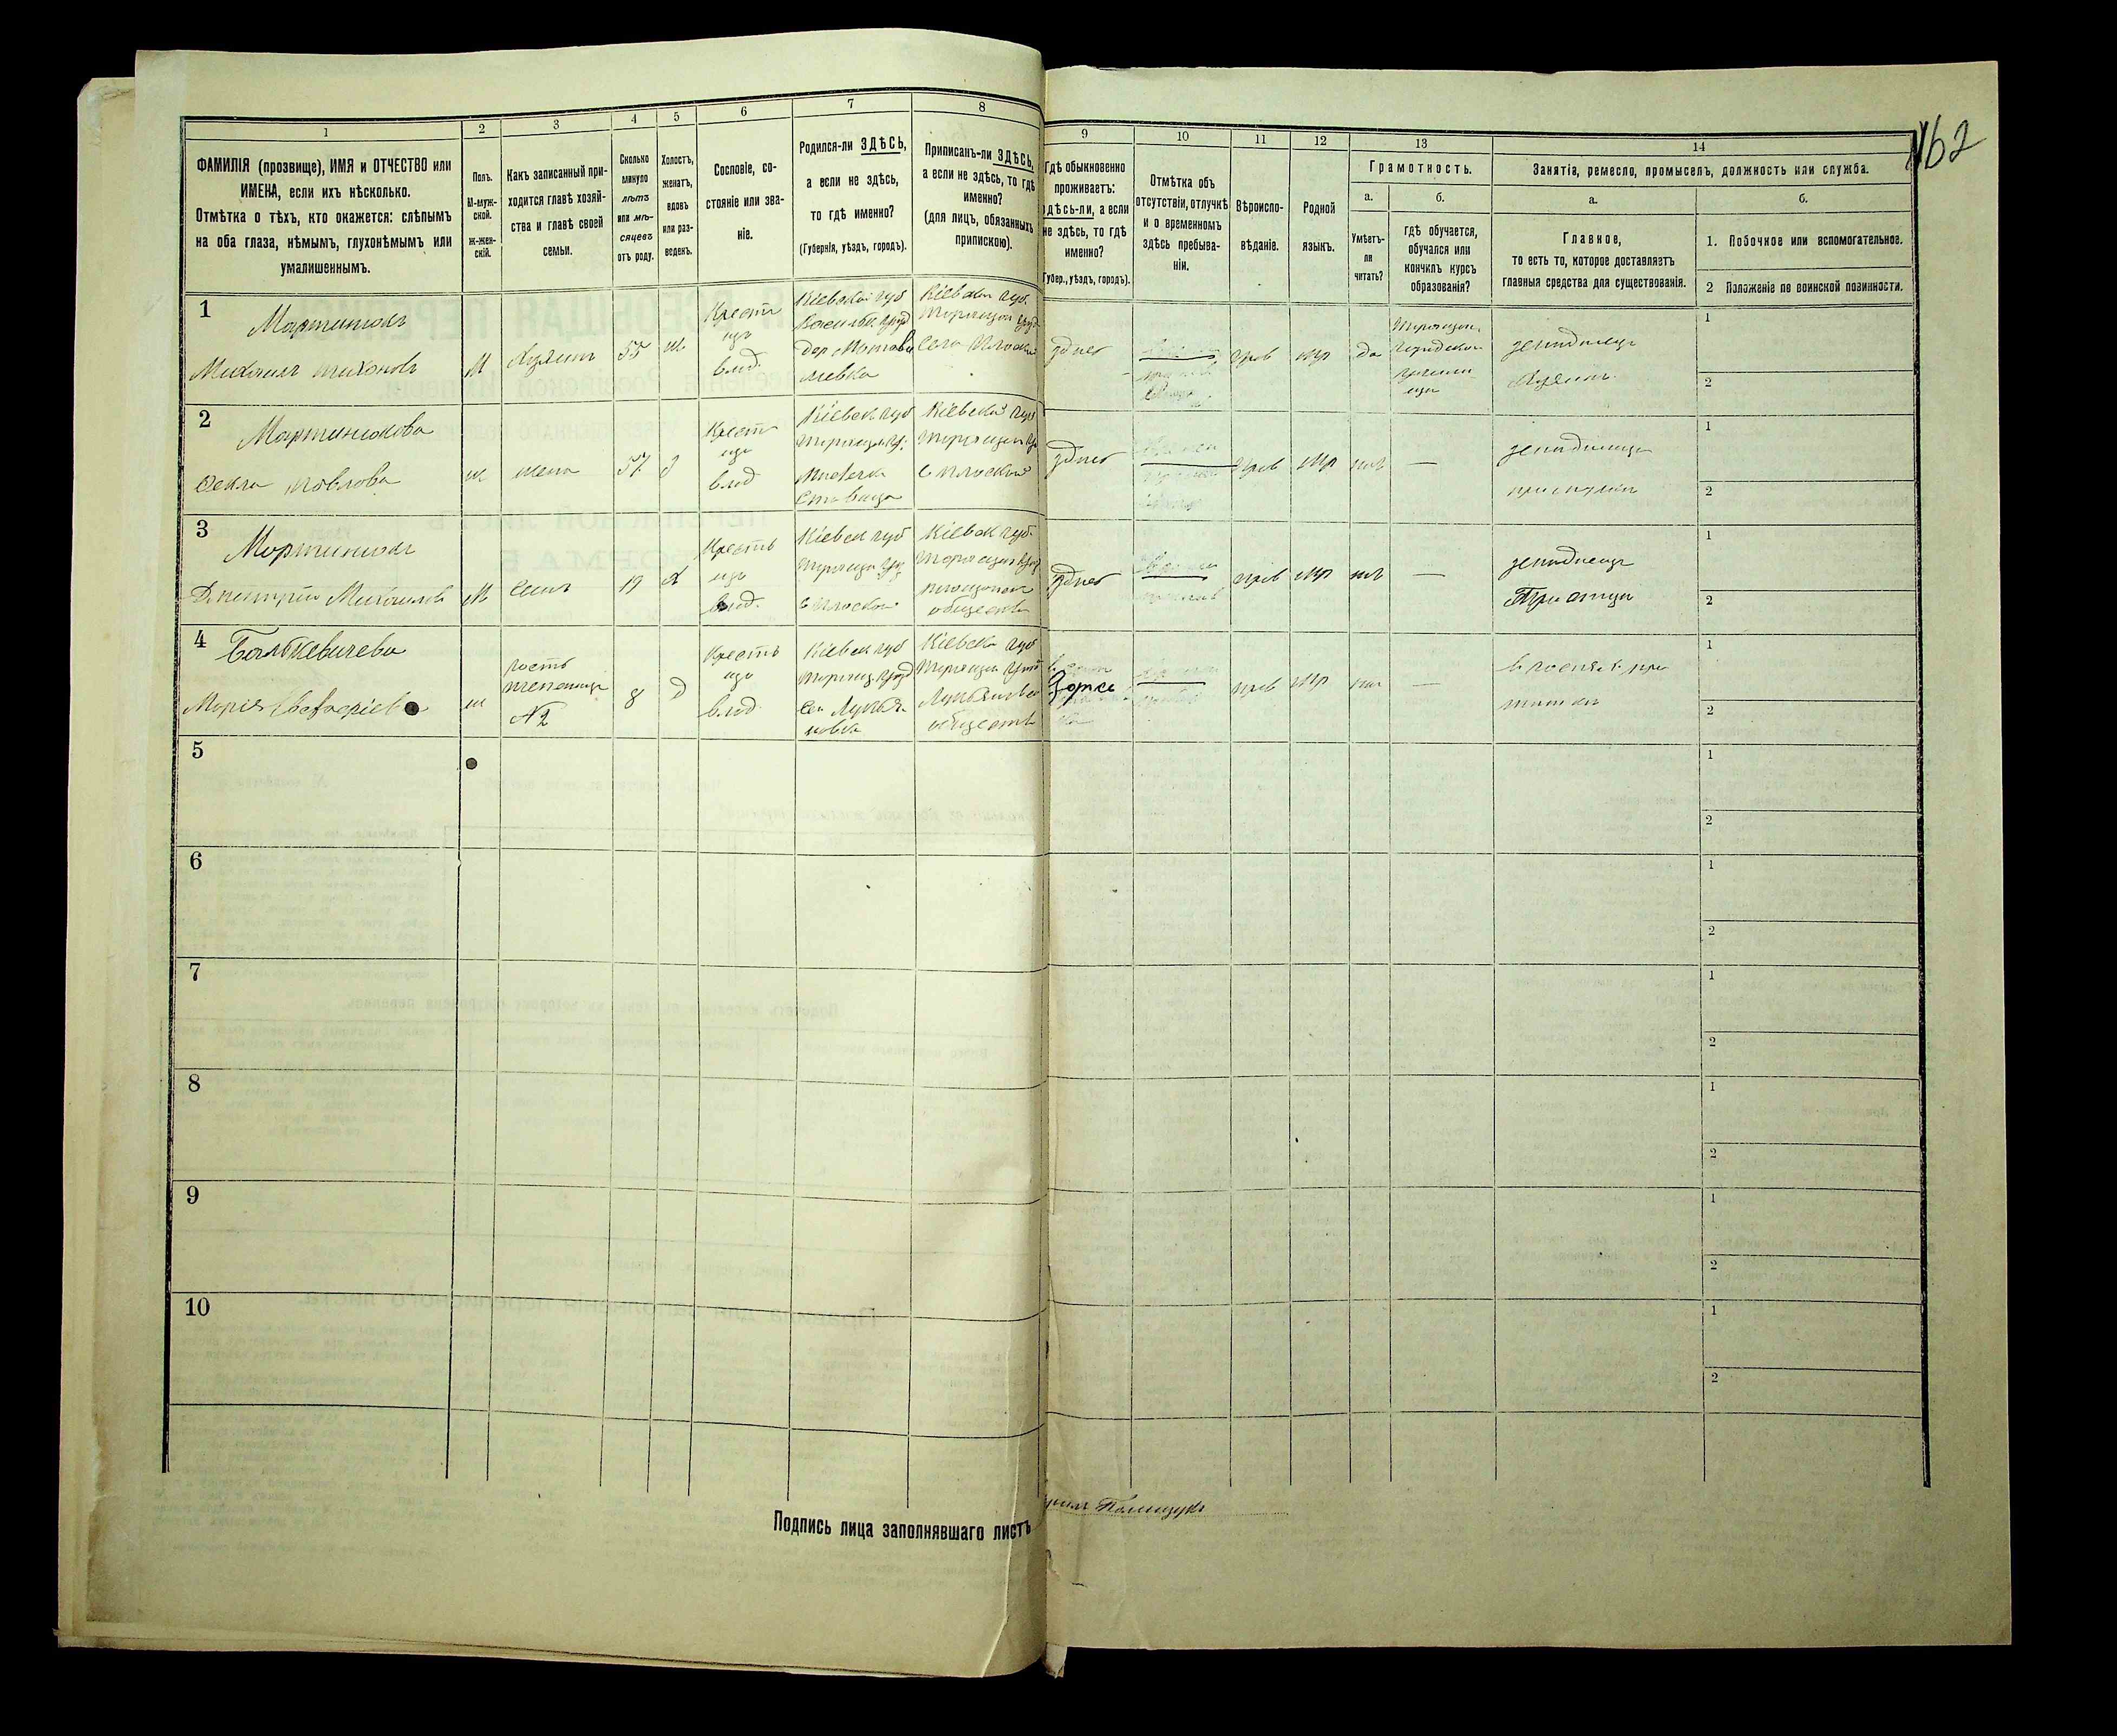 162
1 2 3 4 5 6 7 8 9 10 11 12 13 14
ФАМИЛІЯ (прозвище), ИМЯ и ОТЧЕСТВО или
ИМЕНА, если ихъ нѣсколько.
Отмѣтка о тѣхъ, кто окажется: слѣпымъ
на оба глаза, нѣмымъ, глухонѣмымъ или
умалишеннымъ.
Полъ.
М-муж-
ской.
Ж-жен-
скій.
Какъ записанный при-
ходится главѣ хозяй-
ства и главѣ своей
семьи.
Сколько
минуло
лѣтъ
или мѣ-
сяцевъ
отъ роду.
Холостъ,
женатъ,
вдовъ
или раз-
веденъ.
Сословіе, со-
стояніе или зва-
ніе.
Родился-ли ЗДѢСЬ,
а если не здѣсь,
то гдѣ именно?
(Губернія, уѣздъ, городъ).
Приписанъ-ли ЗДѢСЬ,
а если не здѣсь, то гдѣ
именно?
(для лицъ, обязанныхъ
припискою).
Гдѣ обыкновенно
проживаетъ:
здѣсь-ли, а если
не здѣсь, то гдѣ
именно?
(Губер., уѣздъ, городъ).
Отмѣтка объ
отсутствіи, отлучкѣ
и о временномъ
здѣсь пребыва-
ніи.
Вѣроиспо-
вѣданіе.
Родной
языкъ.
Грамотность.
а.
Умѣетъ-
ли
читать?
б.
гдѣ обучается,
обучался или
кончилъ курсъ
образованія?
Занятія, ремесло, промыселъ, должность или служба.
а.
Главное,
то есть то, которое доставляетъ
главныя средства для существованія.
б.
1. Побочное или вспомогательное.
2 Положеніе по воинской повинности.
1
Мартинюкъ
Михаилъ Тихоновъ
М
Хозяинъ
55
ж
Крестя
нъ
влад.
Кіевской губ
Васильк. уѣзд
дер Мотови
ловка
Кіевской губ.
Таращан уѣзд
Село Плоское
здѣсь
прав
мр
да
Таращан.
Городском
училищ
земледѣлецъ
Хозяинъ
1
2
2
Мартинюкова
Фекла Павлова
ж
жена
57
з
Крестя
нъ
влад
Кіевск губ
Таращан у.
Мѣстечко
Ставище
Кіевской губ
Таращан у
с Плоское
здѣсь
прав
мр
нѣт
—
земледѣлецъ
при мужѣ
1
2
3
Мартинюкъ
Дмитрій Михаиловъ
М
Сынъ
19
х
Кресть
нъ
влад.
Кіевск губ
Таращан уѣз
с Плоское
Кіевск губ.
Таращан уѣзд
обществ
здѣсь
прав
мр
нѣт
—
земледѣлецъ
При отцѣ
1
2
4
Марія
ж
гость
N2
8
д
Кресть
нъ
влад
Кіевск губ
Таращ. уѣзд
Кіевск губ
Таращан уѣзд
обществ
прав
мр
нѣт
—
1
2
5
1
2
6
1
2
7
1
2
8
1
2
9
1
2
10
1
2
Подпись лица заполнявшаго листъ
Полищукъ